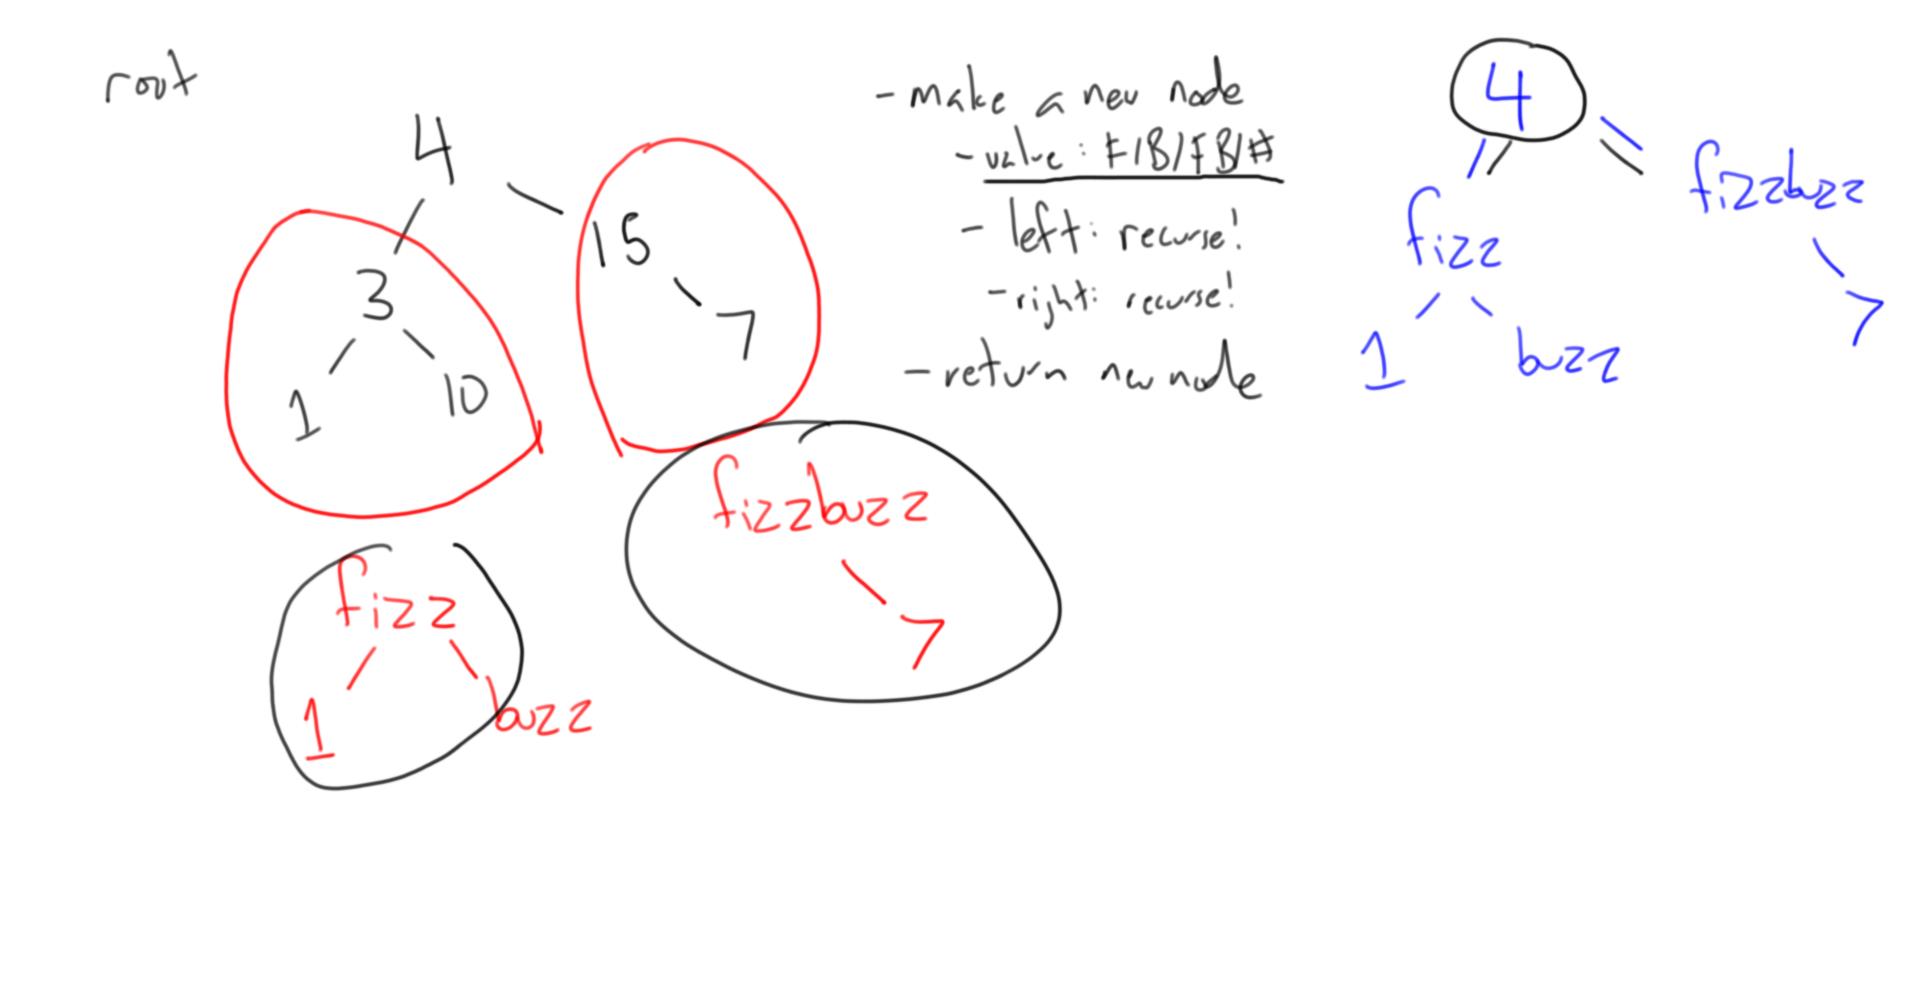 root
4
3
15
1
10
7
fizz
1
buzz
fizzbuzz
7
- make a new node
- value: F/B/FB/#
- left: recurse!
- right: recurse!
- return new node
4
fizz
fizzbuzz
1
buzz
7